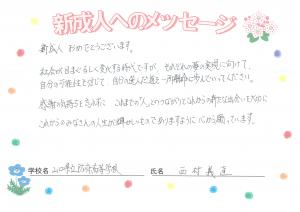 新成人へのメッセージ
新成人 おめでとうございます。
社会が目まぐるしく変化する時代ですが、それぞれの夢の実現に向けて、
自分の可能性を信じて、自分の選んだ道を一所懸命に歩んでいってください。
感謝の気持ちを忘れずに これまでの人とのつながりとこれからの新たな出会いを大切に
これからのみなさんの人生が輝かしいものでありますように心から願っています。
学校名 山口県立防府商工高等学校 氏名 西村 義